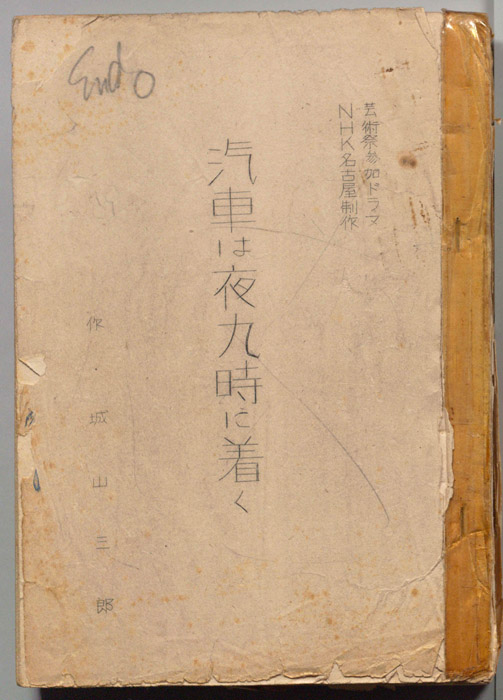 Endo
芸術祭参加ドラマ
NHK名古屋制作
汽車は夜九時に着く
作・城山三郎